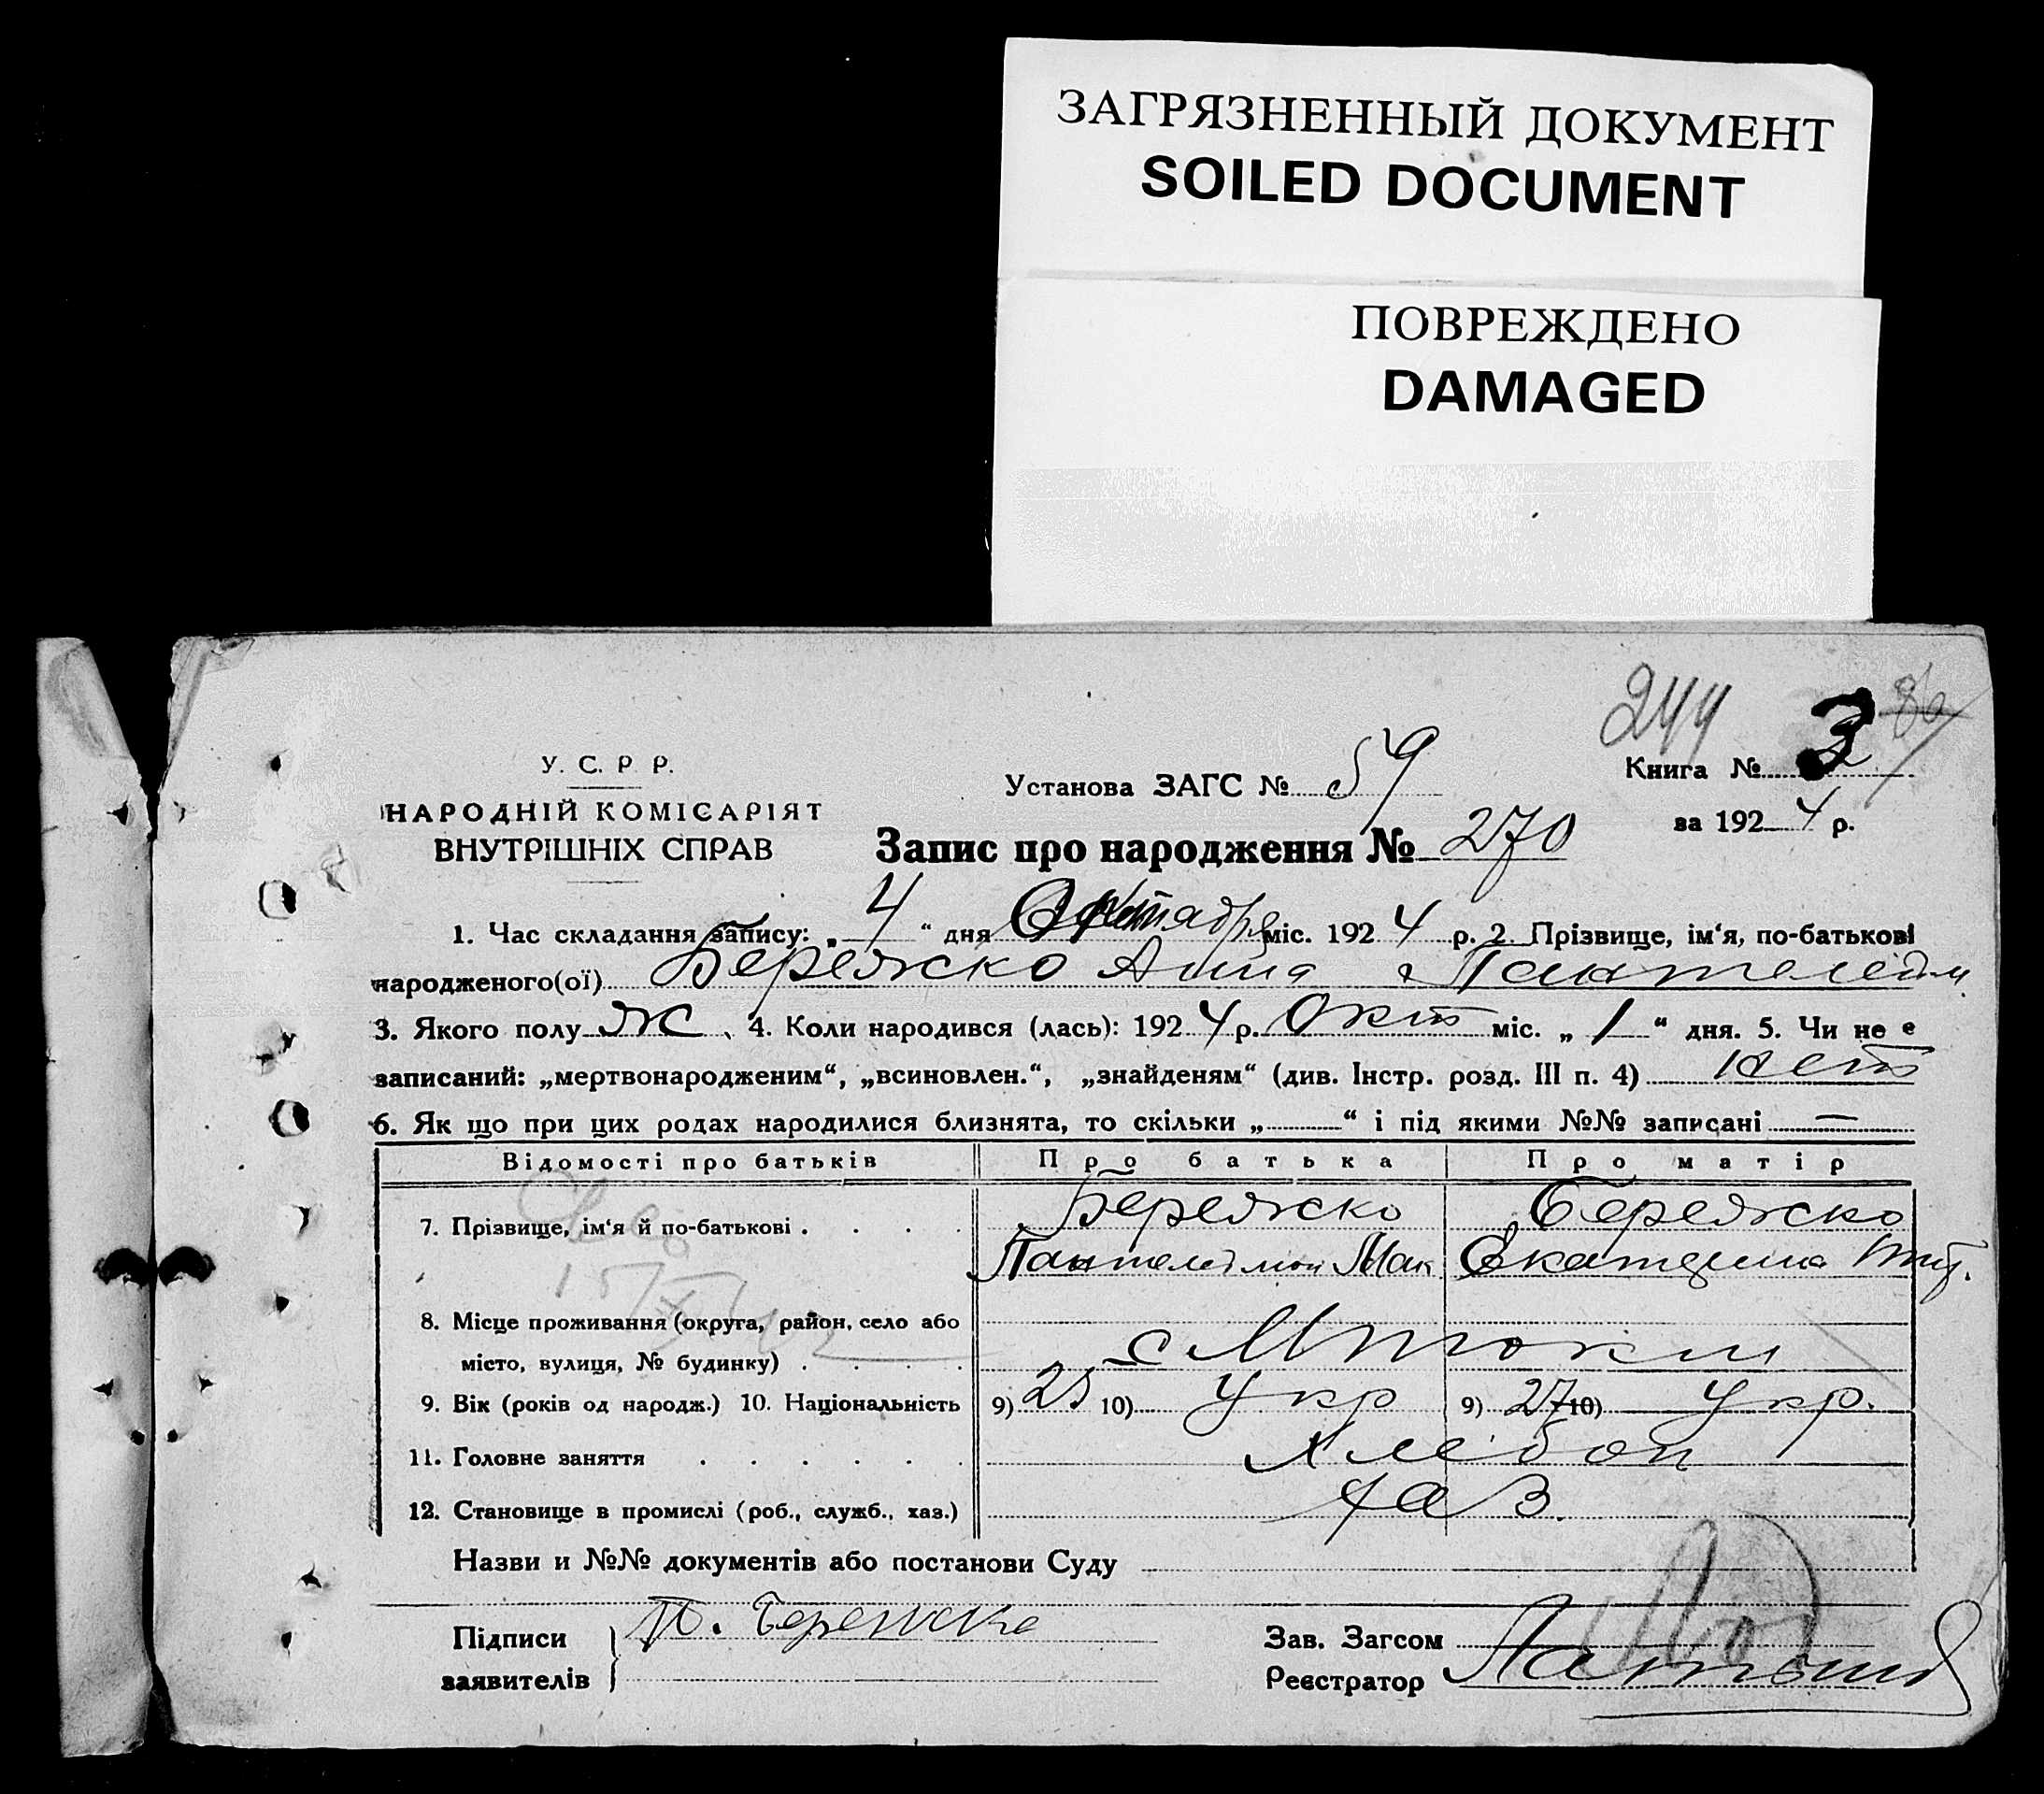 ЗАГРЯЗНЕННЫЙ ДОКУМЕНТ
SOILED DOCUMENT
ПОВРЕЖДЕНО
DAMAGED
244
У. С. Р Р.
НАРОДНІЙ КОМІСАРІЯТ
ВНУТРІШНІХ СПРАВ
Установа ЗАГС № 59
Книга № 3
за 1924 р.
Запис про народження № 270
1. Час складання запису: „4“ дня Октября міс. 1924 р. 2 Прізвище, ім‘я, по-батькові
народженого(ої) Бережско Анна Пантелейм
3. Якого полу ж, 4. Коли народився (лась): 1924 р. Окт міс. „1“ дня. 5. Чи не є
записаний: „мертвонародженим“, „всиновлен.“, „знайденям“ (див. Інстр. розд. III п. 4) нет
6. Як що при цих родах народилися близнята, то скільки „......“ і під якими №№ записані —
Відомості про батьків Про батька Про матір
7. Прізвище, ім‘я й по-батькові . . . . Бережско Бережско
Пантелеймон Мак Екатерина
8. Місце проживання (округа, район, село або
місто, вулиця, № будинку) . . . . с
9. Вік (років од народж.) 10. Національність 9) 25 10) Укр 9) 27 10) Укр.
11. Головне заняття . . . . . . Хлебоп
12. Становище в промислі (роб., служб., хаз.)
Назви и №№ документів або постанови Суду
Підписи П. Бережско
заявителів
Зав. Загсом
Реєстратор